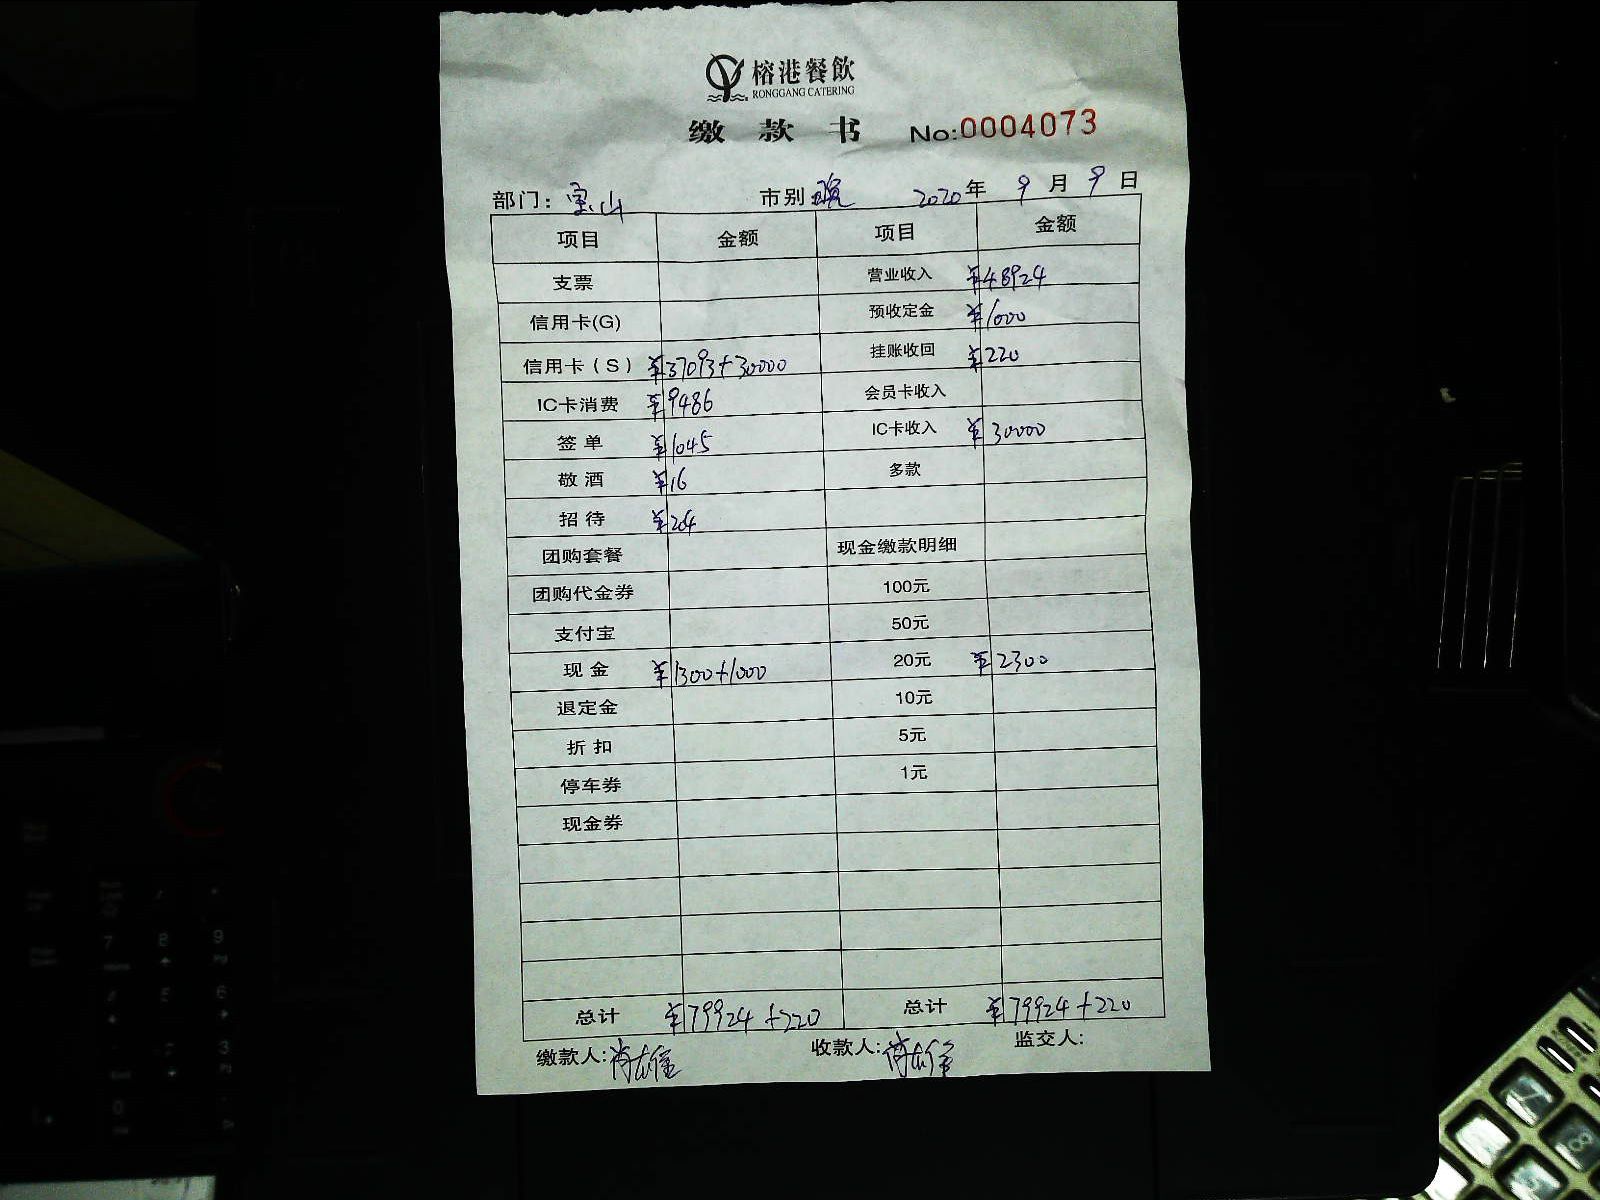 榕港餐飲
RONGGANG CATERING
缴款书 No:0004073
部门：宝山 市别 晚 2020年 9月 9日
项目 金额 项目 金额
支票 营业收入 ¥48924
信用卡(G) 预收定金 ¥1000
信用卡（S） ¥37093+30000 挂账收回 ¥220
IC卡消费 ¥9486 会员卡收入
签单 ¥1045 IC卡收入 ¥30000
敬酒 ¥16 多款
招待 ¥204
团购套餐 现金缴款明细
团购代金券 100元
支付宝 50元
现金 ¥1300+1000 20元 ¥2300
退定金 10元
折扣 5元
停车券 1元
现金券
总计 ¥79924+220 总计 ¥79924+220
缴款人: 收款人: 监交人:
7 8 9
5 6
3
0
7
8